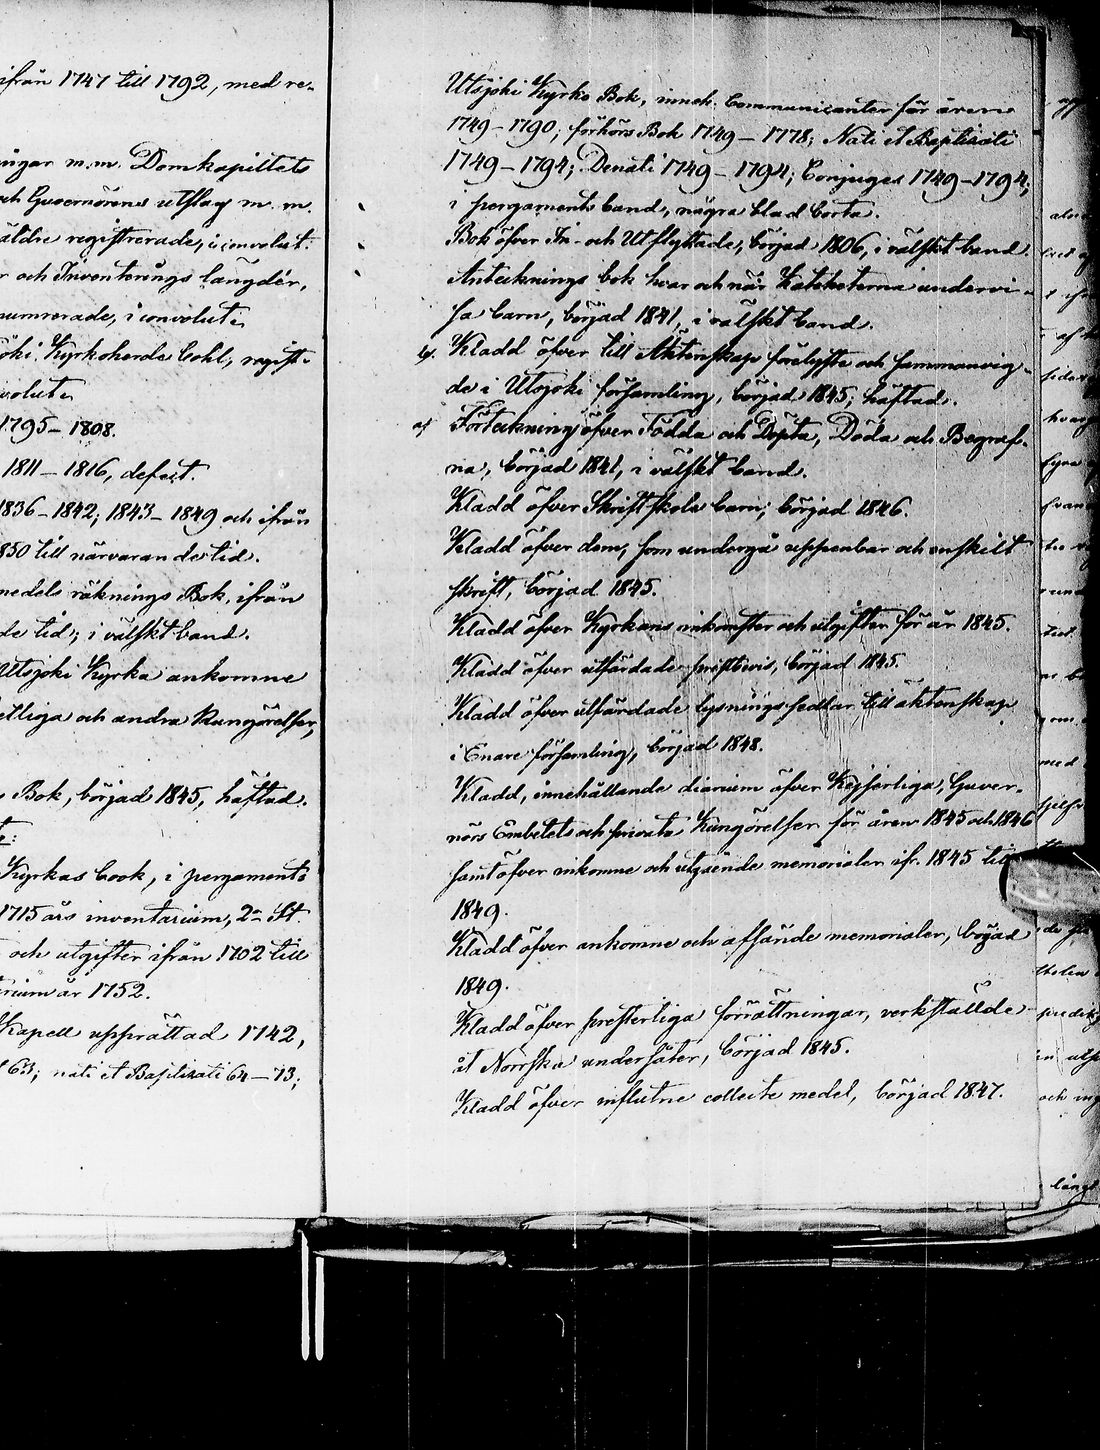 ifrån 1747 till 1792, med re-
ningar m.m. Domkapitlets
och Guvernörens utslag m. m.
äldre registrerade, i convolut.
r och Inventerings längder,
numrerade, i convolut.
Kyrkoherde Cohl; regist-
volut.
1795–1808.
1811–1816, defect.
1836–1842; 1843–1849 och ifrån
850 till närvarande tid.
medels räknings Bok, ifrån
de tid; i välskt band.
Utsjoki Kyrka ankomne
etliga och andra Kungörelser,
s Bok, börjad 1845, häftad.
Kyrkas book, i pergaments
1715 års inventarium, 2ne St
och utgifter ifrån 1702 till
rium år 1752.
Kapell upprättad 1742,
63; nati et Baptizati 64–73;
Utsjoki Kyrko Bok, inneh. Communicanter för åren
1749–1790; förhörs Bok 1749–1778; Nati et Baptizati
1749–1794; Denati 1749–1794; Conjuges 1749–1794;
i pergaments band, några blad borta.
Bok öfver In- och Utflyttade, börjad 1806, i välskt band.
Antecknings bok hvar och när Katcheterna undervi-
sa barn, börjad 1841, i välskt band.
Kladd öfver till Äktenskap förelyste och sammanvig-
de i Utsjoki församling, börjad 1845; häftad.
Förteckning öfver Födda och Döpta, Döda och Begraf-
na, börjad 1841, i välskt band.
Kladd öfver Skriftskole barn; börjad 1846.
Kladd öfver dem, som undergå uppenbar och enskilt
skrift, börjad 1845.
Kladd öfver Kyrkans inkomster och utgifter för år 1845.
Kladd öfver utfärdade prestbevis, börjad 1845.
Kladd öfver utfärdade lysningssedlar till äktenskap
i Enare församling, börjad 1848.
Kladd, innehållande diarium öfver Kejserliga, Guver-
nörs Embetets och privata Kungörelser för åren 1845 och 1846
samt öfver inkomne och utgående memorialer ifr. 1845 till
1849.
Kladd öfver ankomne och afsände memorialer, börjad
1849.
Kladd öfver presterliga förrättningar, verkställde
åt Norrska undersåter, börjad 1845.
Kladd öfver influtne collecte medel, börjad 1847.